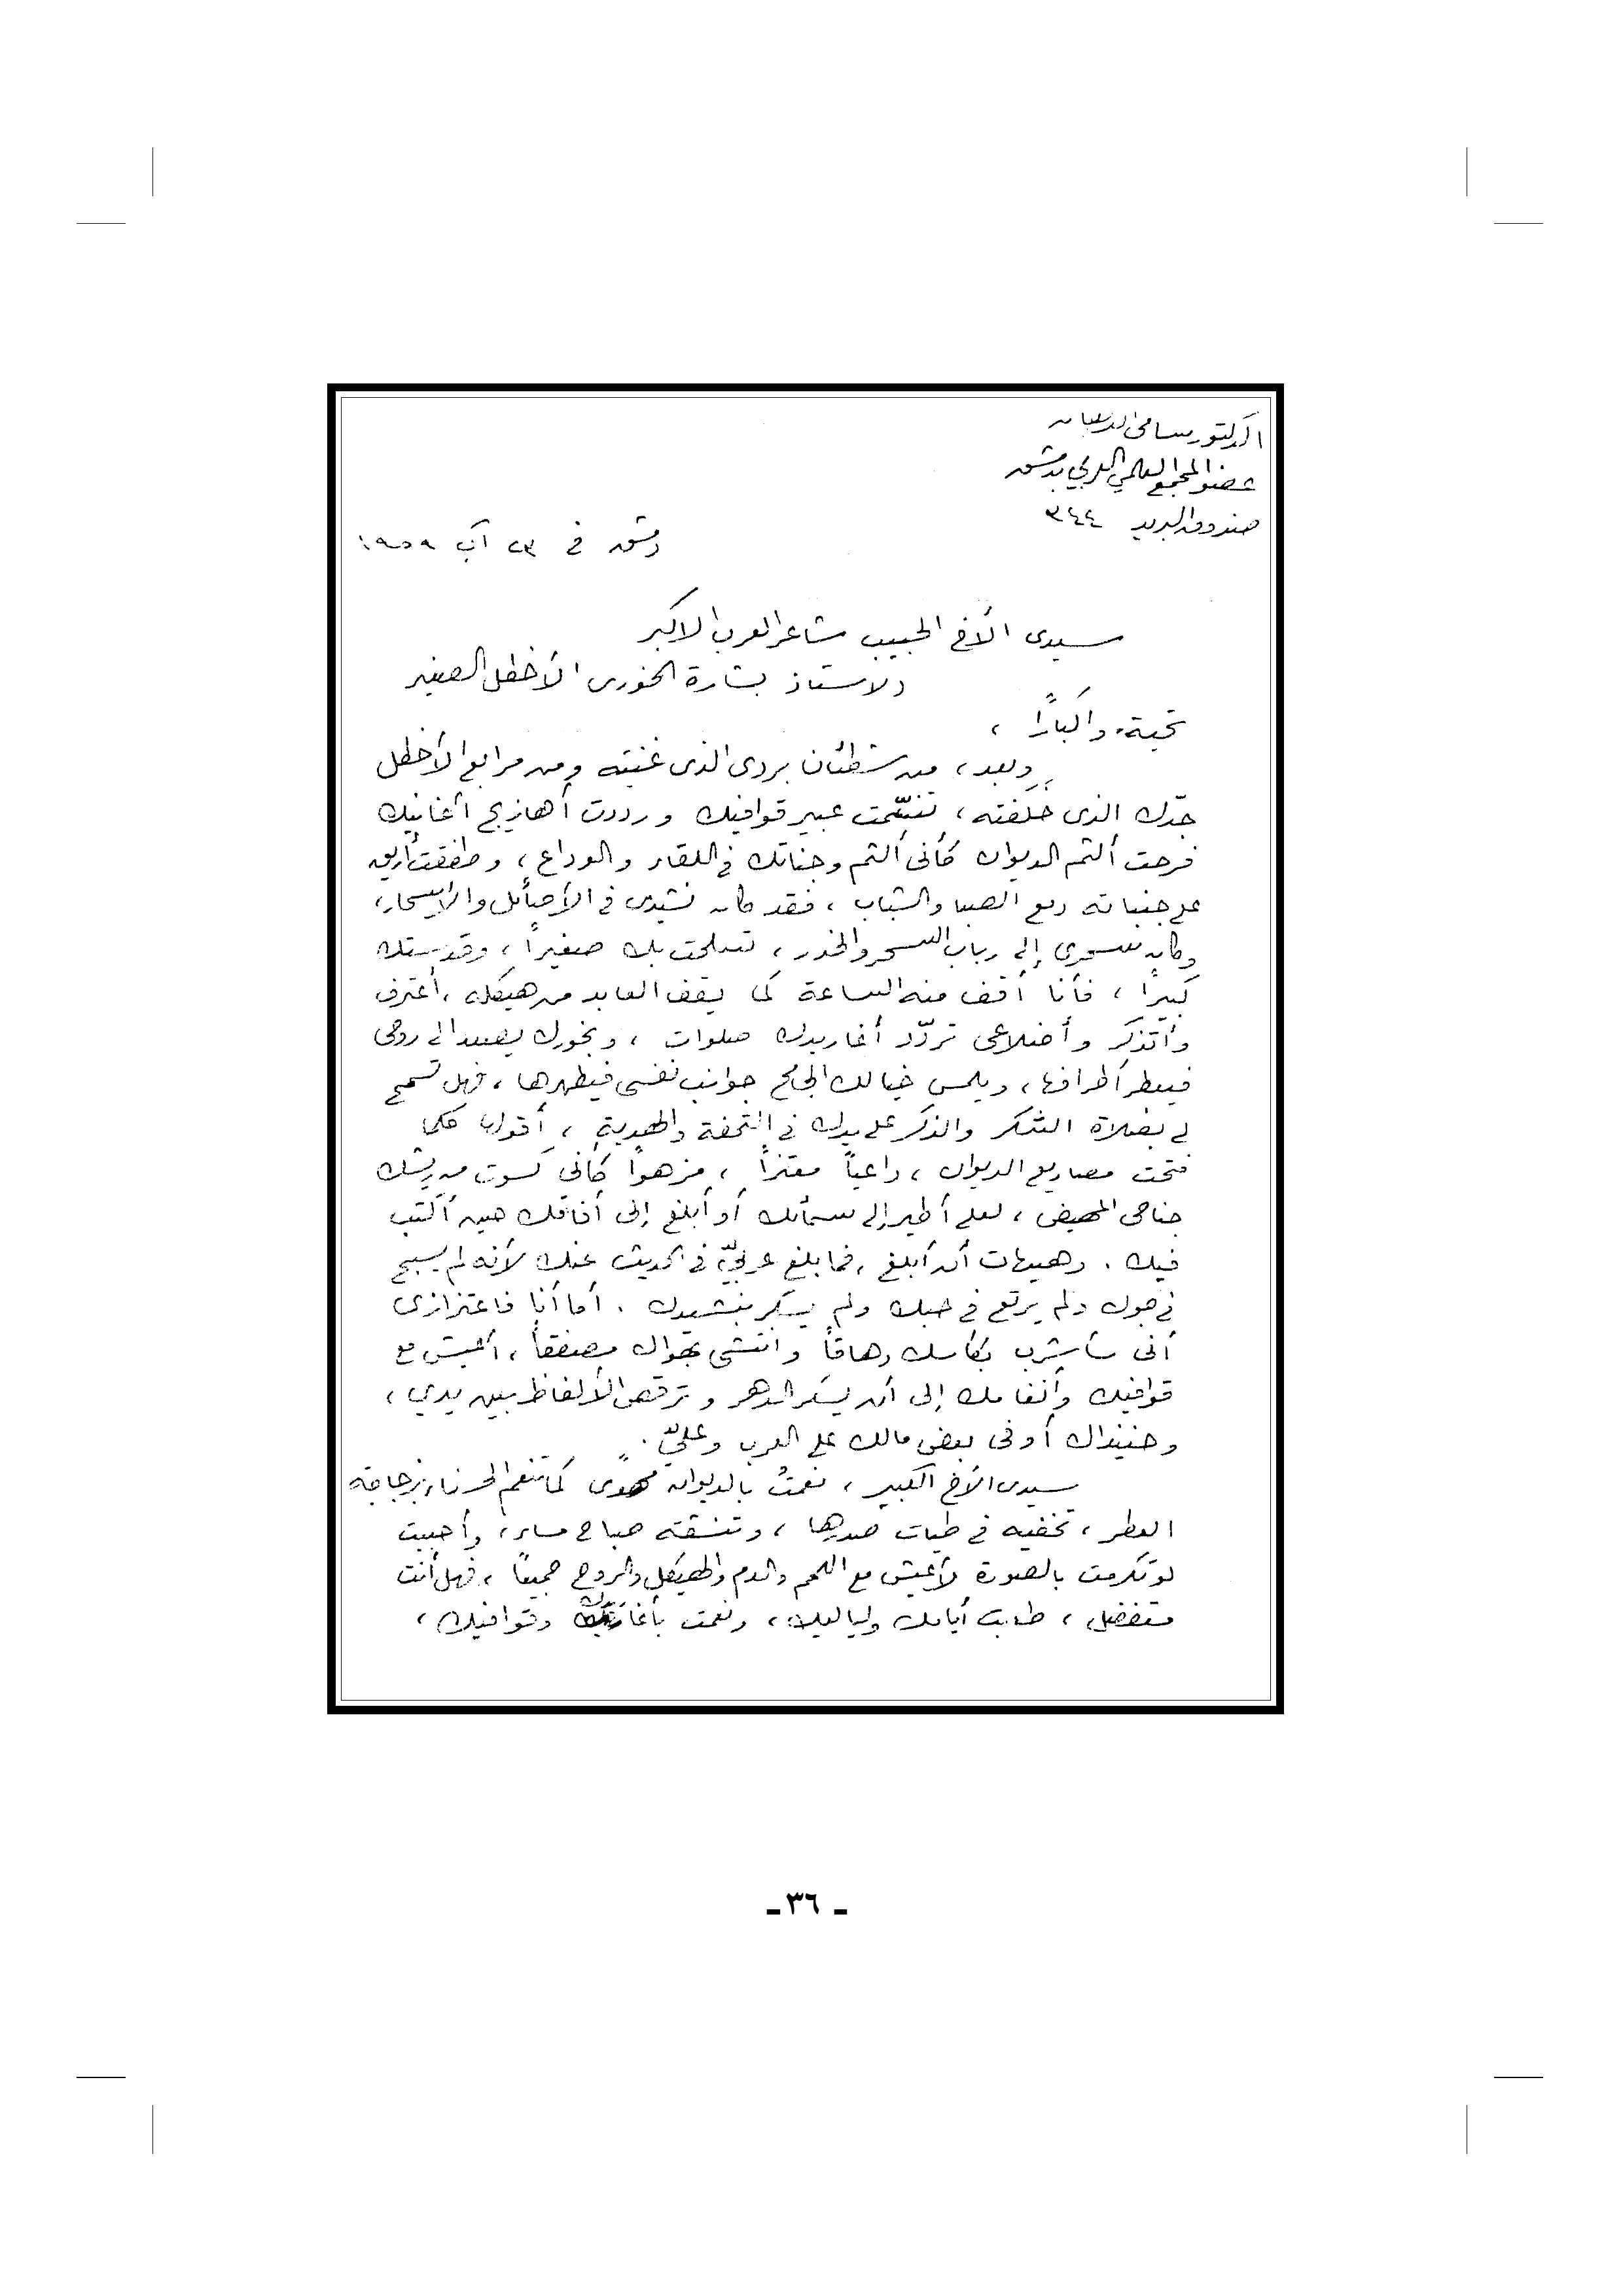 الدكتور سامي الدهان
عضو المجمع العلمي العربي بدمشق
صندوق البريد ٣٤٤
دمشق في ٢٣ آب ١٩٥٩
سيدى الأخ الحبيب شاعر العرب الاكبر
الاستاذ بشارة الخورى الأخطل الصغير
تحية وإكباراً ،
وبعد ، من شطئان بردى الذى غنيته ومن مرابع الأخطل
جدّك الذى خلفته ، تنسّمت عبير قوافيك ورددت أهازيج أغانيك
فرحت ألثم الديوان كأنى ألثم وجناتك في اللقاء والوداع ، وطفقت أريق
على جنباته دمع الصبا والشباب ، فقد كان نشيدى في الأصائل والأسحار ،
وكان سحرى إلى رباب السحر والخدر ، تسلحت بك صغيراً ، وقدستك
كبيراً ، فأنا أقف منه الساعة كما يقف العابد من هيكله ، أعترف
وأتذكر وأضلاعى تردّد أغاريدك صلوات ، وبخورك يصعد الى روحى
فيعطر أطرافها ، ويلمس خيالك الجامح جوانب نفسى فيطهرها ، فهل تسمح
لي بصلاة الشكر والذكر على يدك في التحفة والهدية ، أقولها كلما
فتحت مصاريع الديوان ، داعياً معتزاً ، مزهواً كأنى كسوت من ريشك
جناحى المهيض ، لعلى أطير إلى سمائك أو أبلغ إلى أفاقك حين أكتب
فيك . وهيهات أن أبلغ ، فما بلغ عربيّ في الحديث عنك لأنه لم يسبح
في جوك ولم يرتع في حبك ولم يسكر بنشيدك . أما أنا فاعتزازى
أنى سأشرب بكأسك دهاقاً وانتشى بهواك مصفقاً ، أعيش مع
قوافيك وأنغامك إلى أن يسكر الدهر وترقص الألفاظ بين يدي ،
وحينذاك أوفى بعض مالك على العرب وعليّ .
سيدى الأخ الكبير ، نعمتُ بالديوان مهدى كما تنعم الحسناء بزجاجة
العطر ، تخفيه في طيات صدرها ، وتنشقته صباح مساء ، وأحببت
لو تكرمت بالصورة لأعيش مع اللحم والدم والهيكل والروح جميعاً ، فهل أنت
متفضل ، طابت أيامك ولياليك ، ونعمت بأغاريدك وقوافيك ،
ـ ٣٦ ـ